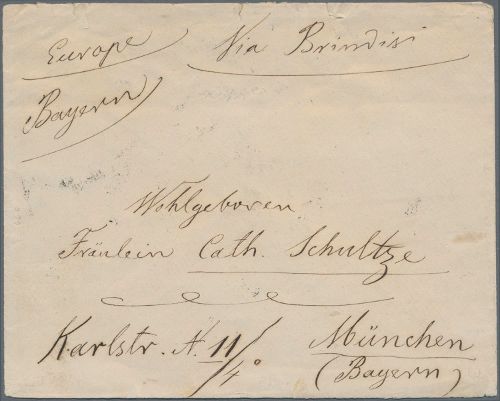 Europe Via Brindisi
Bayern
Wohlgeboren
Fräulein Cath. Schultze
Karlstr. N. 11/4° München
(Bayern)